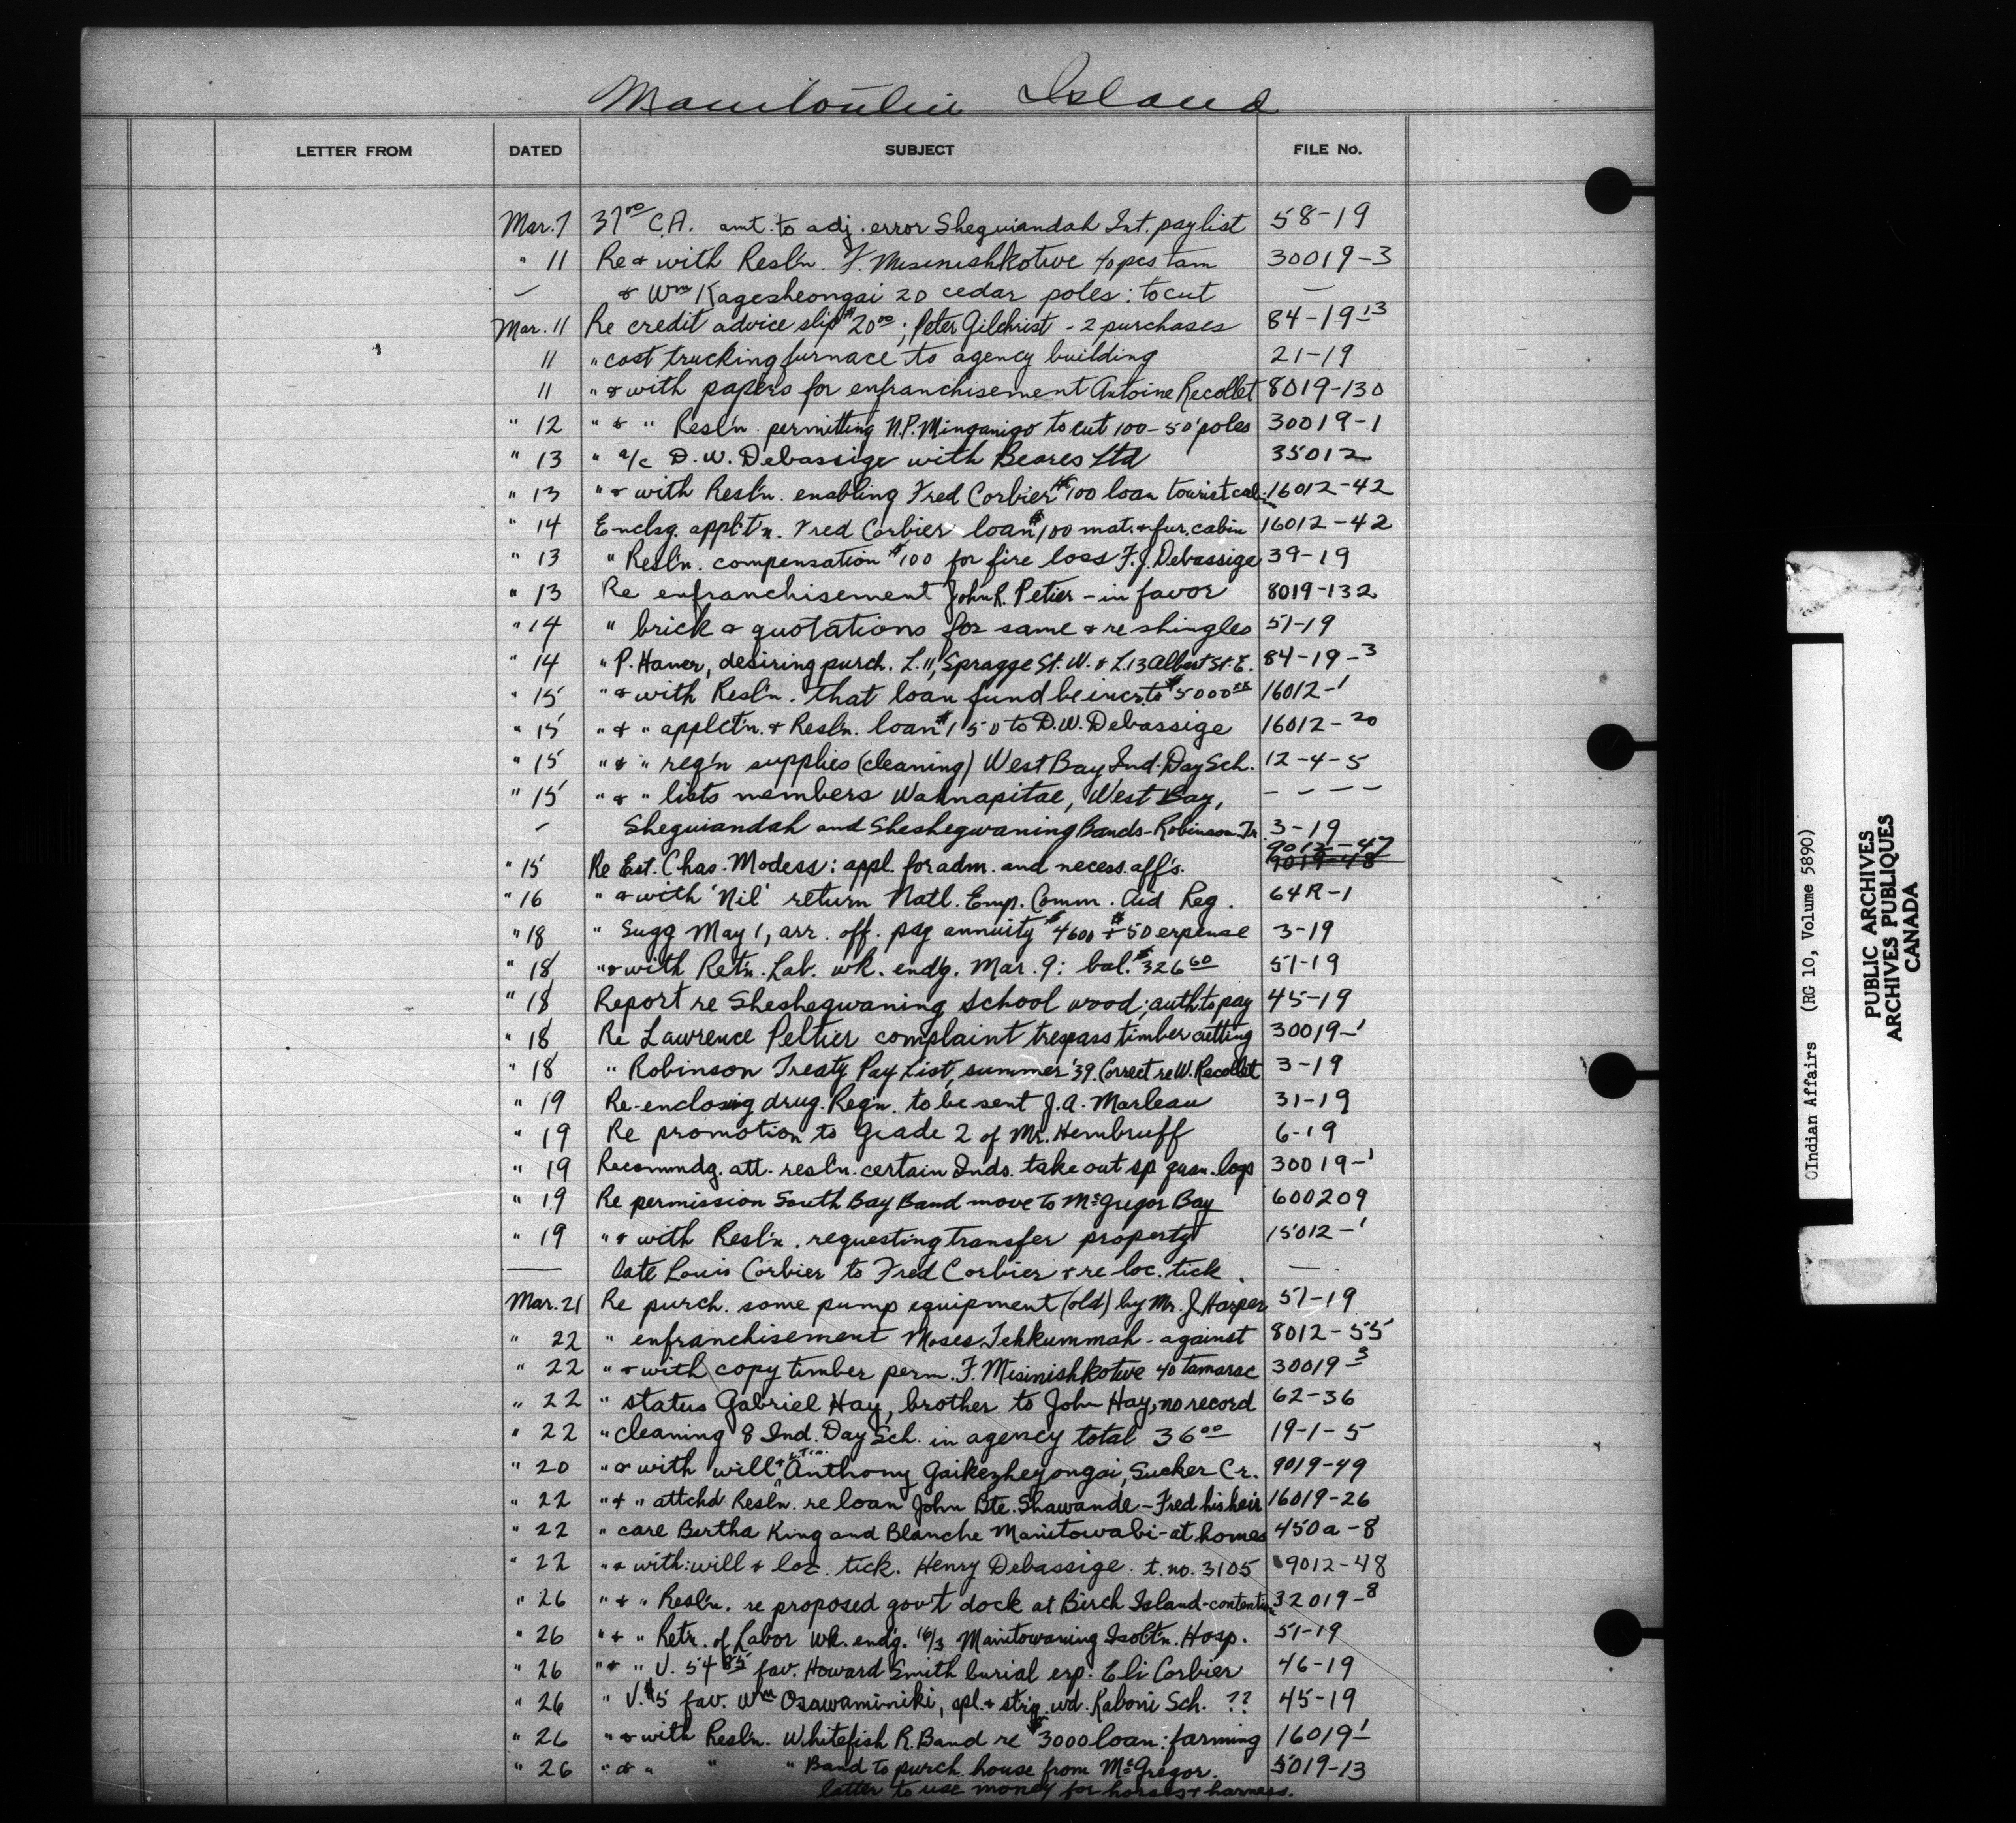 Manitoulin Island
LETTER FROM DATED SUBJECT FILE No.
Mar. 7 37 00 C.A. amt. to adj. error Sheguiandah Int. paylist 58-19
" 11 Re & with Resl'n. F. Misinishkotwe 40 pcs tam 30019-3
— & Wm Kagesheongai 20 cedar poles: to cut —
Mar. 11 Re credit advice slip $20 00; Peter Gilchrist - 2 purchases 84-19-13
11 " cost trucking furnace to agency building 21-19
11 " & with papers for enfranchisement Antoine Recollet 8019-130
" 12 " & " Resl'n. permitting N.P. Minganigo to cut 100-50' poles 30019-1
" 13 " a/c D.W. Debassige with Beares Ltd 35012
" 13 " & with Resl'n. enabling Fred Corbier $100 loan tourist cabin 16012-42
" 14 Enclsg. applct'n. Fred Corbier loan $100 mat. & fur. cabin 16012-42
" 13 " Resl'n. compensation $100 for fire loss F.J. Debassige 39-19
" 13 Re enfranchisement John R. Petier - in favor 8019-132
" 14 " brick & quotations for same & re shingles 51-19
" 14 " P. Haner, desiring purch. L.11, Spragge St. W. & L.13 Albert St. E. 84-19-3
" 15 " & with Resl'n. that loan fund be incr. to $5000 xx 16012-1
" 15 " & " applct'n. & Resl'n. loan $150 to D.W. Debassige 16012-20
" 15 " & " reg'n supplies (cleaning) West Bay Ind. Day Sch. 12-4-5
" 15 " & " lists members Wahnapitae, West Bay, - - - -
— Sheguiandah and Sheshegwaning Bands - Robinson Tr. 3-19
9012-47
" 15 Re Est. Chas. Modess: appl. for adm. and necess. aff's. 9019-48
" 16 " & with 'Nil' return Natl. Emp. Comm. Aid Reg. 64R-1
" 18 " Sugg May 1, arr. off. pay annuity $4600 + $50 expense 3-19
" 18 " & with Ret'n. Lab. wk. end'g. Mar. 9: bal. $326 60 51-19
" 18 Report re Sheshegwaning school wood; auth. to pay 45-19
" 18 Re Lawrence Peltier complaint trespass timber cutting 30019-1
" 18 " Robinson Treaty Pay List, summer '39. Correct re W. Recollet 3-19
" 19 Re-enclosing drug. Reg'n. to be sent J.A. Marleau 31-19
" 19 Re promotion to Grade 2 of Mr. Hembruff 6-19
" 19 Recommdg. att. resl'n. certain Inds. take out sp logs 30019-1
" 19 Re permission South Bay Band move to McGregor Bay 600209
" 19 " & with Resl'n. requesting transfer property 15012-1
— late Louis Corbier to Fred Corbier & re loc. tick. —
Mar. 21 Re purch. some pump equipment (old) by Mr. J. Harper 51-19
" 22 " enfranchisement Moses Tehkummah - against 8012-55
" 22 " & with copy timber perm. F. Misinishkotwe 40 tamarac 30019-3
" 22 " status Gabriel Hay, brother to John Hay, no record 62-36
" 22 " cleaning 8 Ind. Day Sch. in agency total 36 00 19-1-5
" 20 " & with will & Anthony Gaikezheyongai, Sucker Cr. 9019-49
" 22 " & " attchd Resl'n. re loan John Bte. Shawande - Fred his heir 16019-26
" 22 " care Bertha King and Blanche Manitowabi - at homes 450a-8
" 22 " & with: will & loc. tick. Henry Debassige t. no. 3105 9012-48
" 26 " & " Resl'n. re proposed gov't dock at Birch Island - contention 32019-8
" 26 " & " Ret'n. of Labor wk. end'g. 16/3 Manitowaning Isolt'n. Hosp. 51-19
" 26 " & " V. 54 85 fav. Howard Smith burial exp. Eli Corbier 46-19
" 26 " V. $5 fav. Wm Osawaminiki, spl. & strg. wd. Kaboni Sch. ?? 45-19
" 26 " & with Resl'n. Whitefish R. Band re $3000 loan: farming 16019-1
" 26 " & " " " Band to purch. house from McGregor. 5019-13
latter to use money for horses & harness.
©Indian Affairs (RG 10, Volume 5890)
PUBLIC ARCHIVES
ARCHIVES PUBLIQUES
CANADA